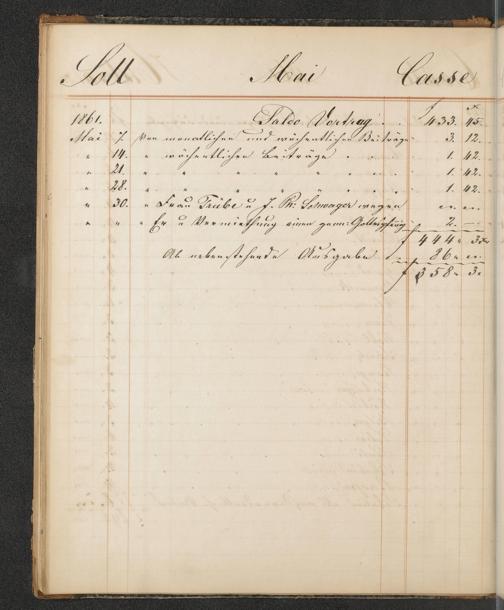 Soll Mai Casse
1861. Saldo Vortrag . . 433. 45.
Mai 7. Von monatlichen und wöchentlichen Beiträge 3. 12.
" 14. " wöchentlichen Beiträge . . . 1. 42.
" 21. " " " . . . 1. 42.
" 28. " " " . . . 1. 42.
" 30. " Frau Traube u J. wegen
" " " Er u Vermiethung einen 2. —
f 444. 3
Ab nebenstehende Ausgabe 86.
f 358. 3.